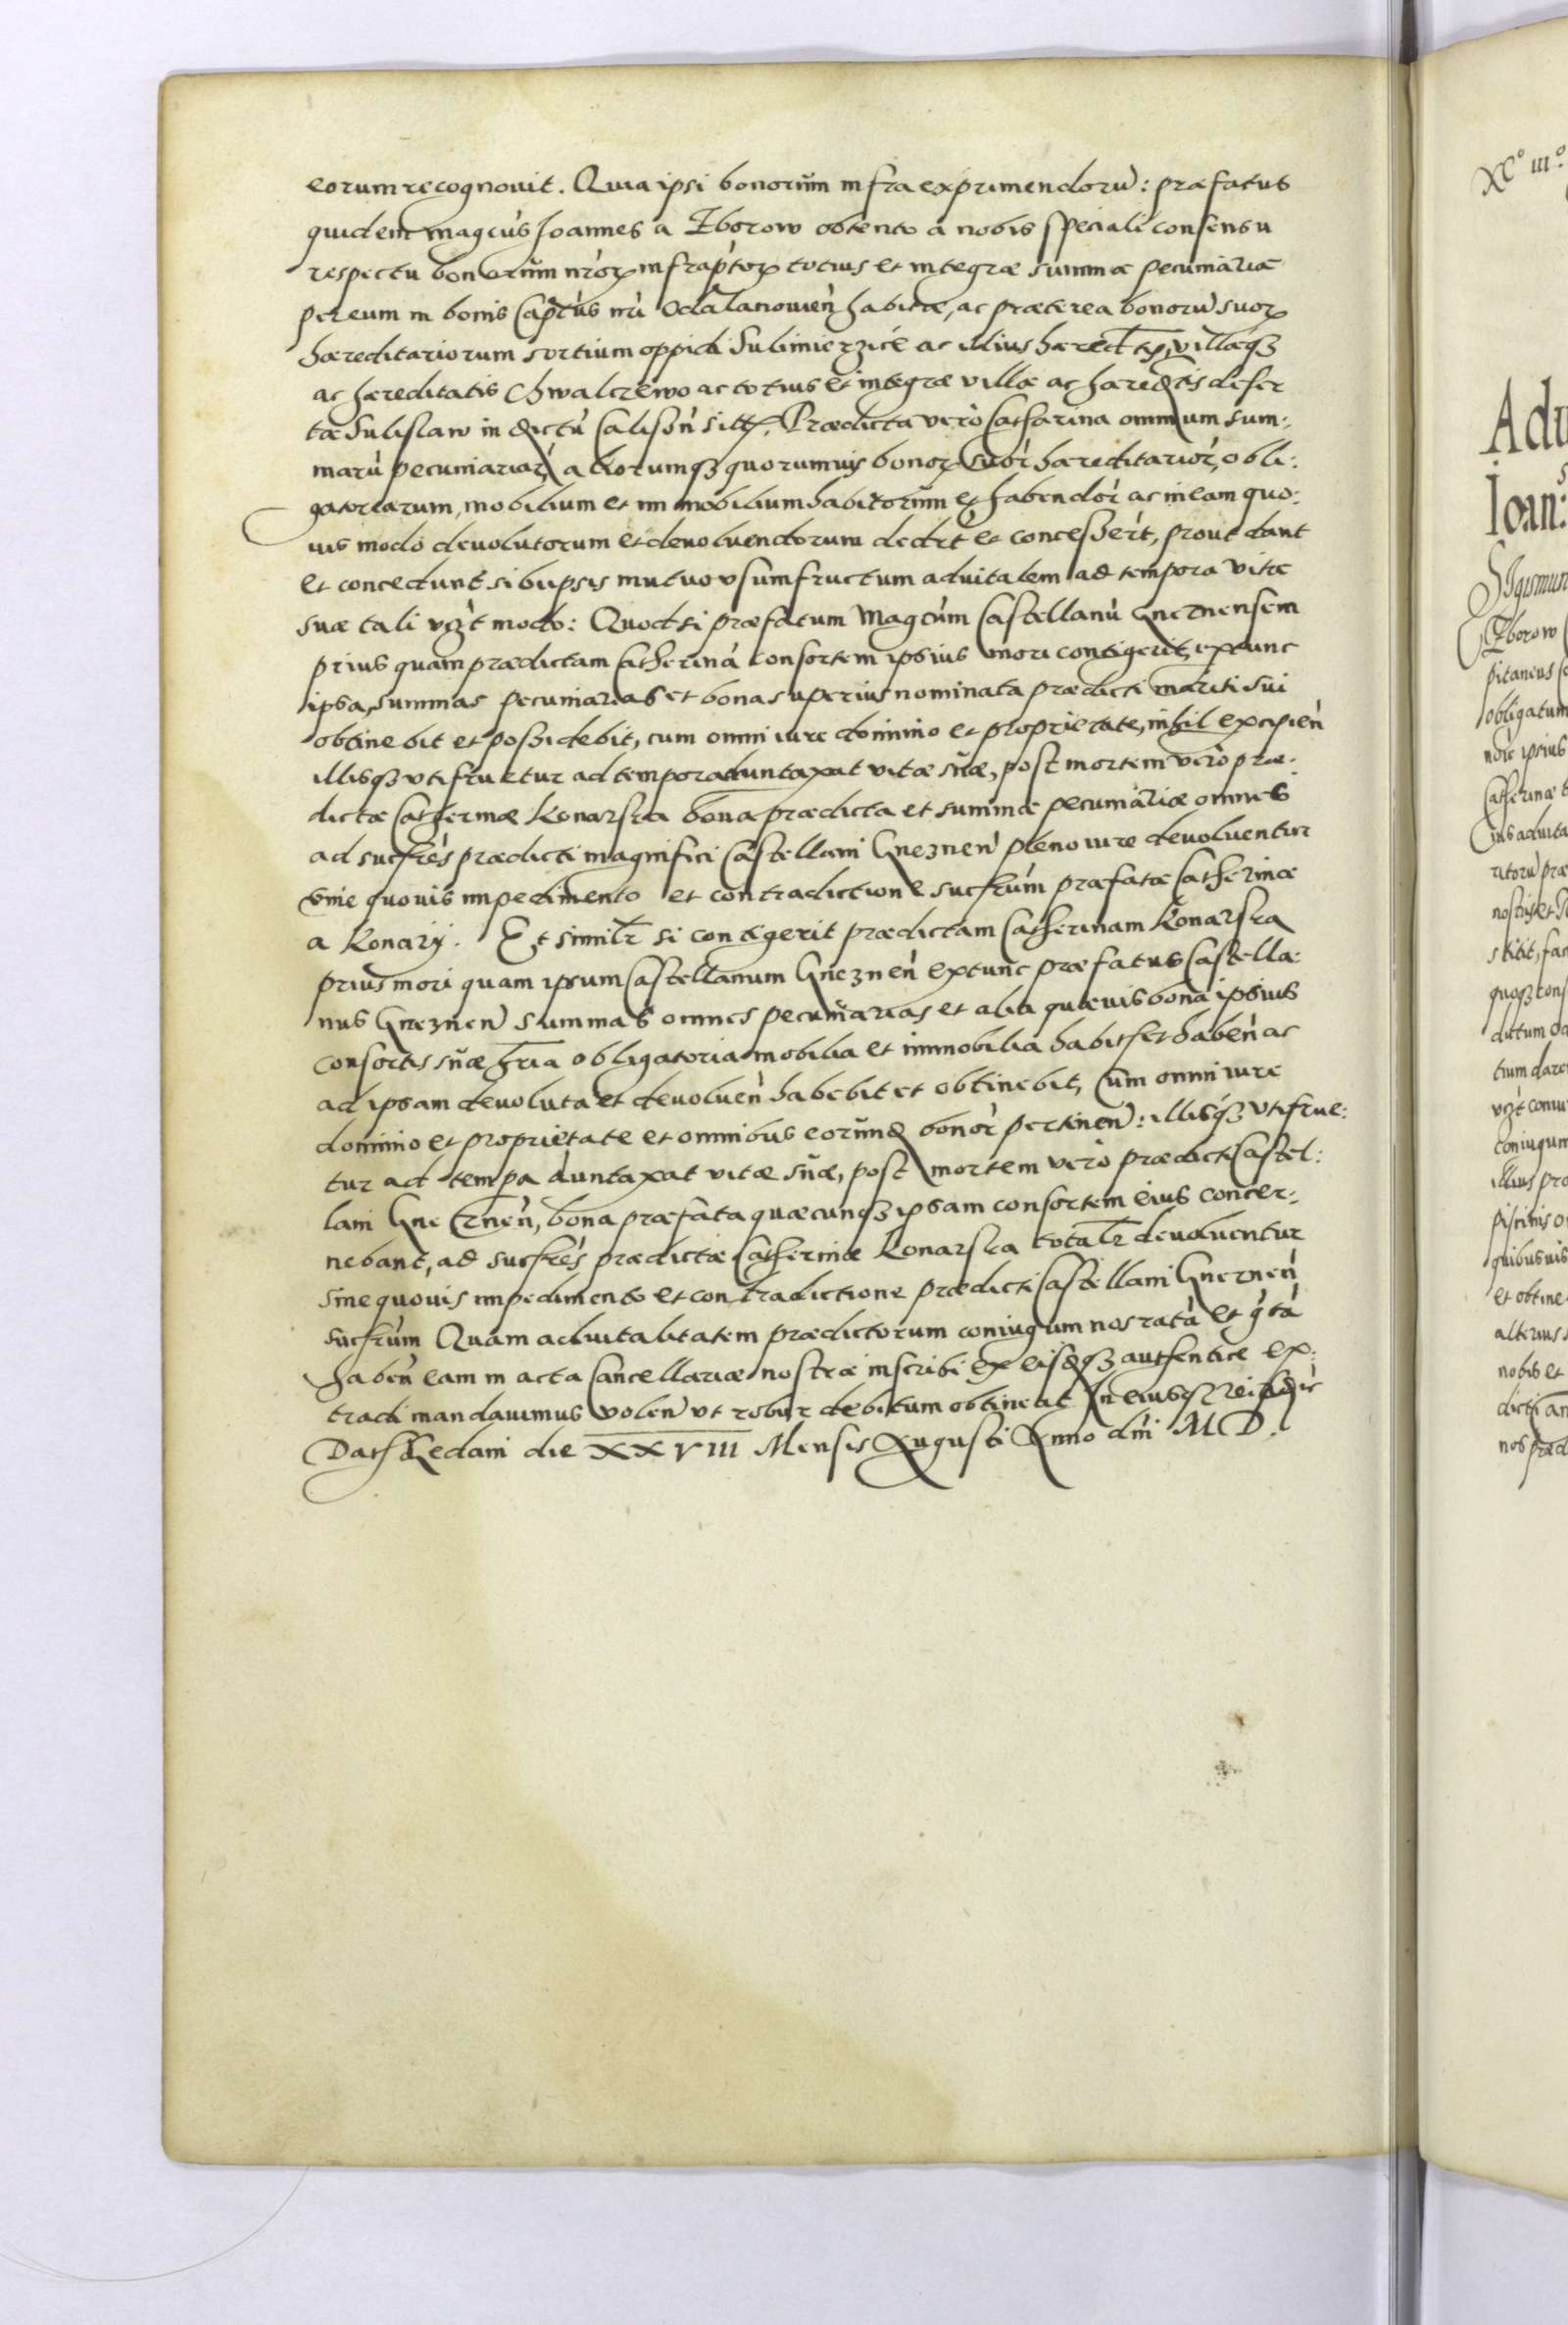 eorum recognouit. Quia ipsi bonorum̃ infra exprimendorũ: præfatus
quidem magcus Joannes a Zborow obtento à nobis speciali consensu
respectu bonorum nrorꝝ infraptorꝝ totius et integræ summæ pecuniariæ
per eum in bonis Captus nri Odalanouien habitæ, ac præterea bonorũ suorꝝ
hæreditariorum sortium oppidi Sulimierzice ac illius hæredtꝝ, villæqꝫ
ac hæreditatis Chwalczewo ac totius et integræ villæ ac hæredtis deser
tæ Sulislaw in districtu Calisien sitt. Prædicta verò Catharina omnium sum:
marũ pecuniariar, aliorumqꝫ quorumuis bonorꝝ suor hæreditarior, obli:
gatoriarum, mobilium et immobilium habitorum et habendor ac in eam quo:
uis modo deuolutorum et deuoluendorum dedit et concesserit, prout dant
et concedunt sibiipsis mutuo vsumfructum aduitalem ad tempora vitæ
suæ tali vꝫt modo: Quod si præfatum Magcum Castellanũ Gneznensem
prius quam prædictam Catherinã consortem ipsius mori contigerit, extunc
ipsa, summas pecuniarias et bona superius nominata prædicti mariti sui
obtinebit et possidebit, cum omni iure dominio et proprietate, nihil excipien
illisqꝫ vtifruetur ad tempora duntaxat vitæ suæ, post mortem verò præ:
dictæ Catherinæ Konarska bona prædicta et summæ pecuniariæ omnes
ad sucsres prædicti magnifici Castellani Gneznen pleno iure deuoluentur
sine quouis impedimento et contradictione sucsrum præfatæ Catherinæ
a Konarÿ. Et similr si contigerit prædictam Catherinam Konarska
prius mori quam ipsum Castellanum Gneznen extunc præfatus Castella:
nus Gneznen summas omnes pecuniarias et alia quæuis bona ipsius
consortis suæ hria obligatoria mobilia et immobilia habit et haben ac
ad ipsam deuoluta et deuoluen habebit et obtinebit, cum omni iure
dominio et proprietate et omnibus eorund bonor pertinen: illisqꝫ vtifrue:
tur ad tempa duntaxat vitæ suæ, post mortem verò prædicti Castel:
lani Gneznen, bona præfata quæcunqꝫ ipsam consortem eius concer:
nebant, ad sucsres prædictæ Catherinæ Konarska totalr deuoluentur
sine quouis impedimento et contradictione prædicti Castellani Gneznen
sucsrum Quam aduitalitatem prædictorum coniugum nos ratã et grtã
haben eam in acta Cancellariæ nostræ inscribi ex eisdqꝫ authentice ex:
tradi mandauimus volen vt robur debitum obtineat In eius rei
Dat Gedani die XXVIII Mensis Augusti Anno dni MD.
Xcͦ IIIͦ
Adu
Joan:
Sigismun
Zborow
pitaneus
obligatum
ipsius
Catherinæ
ius aduita
ritorũ præ
nostris et
stitit, fa
quosqꝫ cons
dictum
tium dare
vꝫt coniu
coniugum
illius pro
piscinis
quibusuis
et obtine
alterius
nobis et
dicti
nos præd